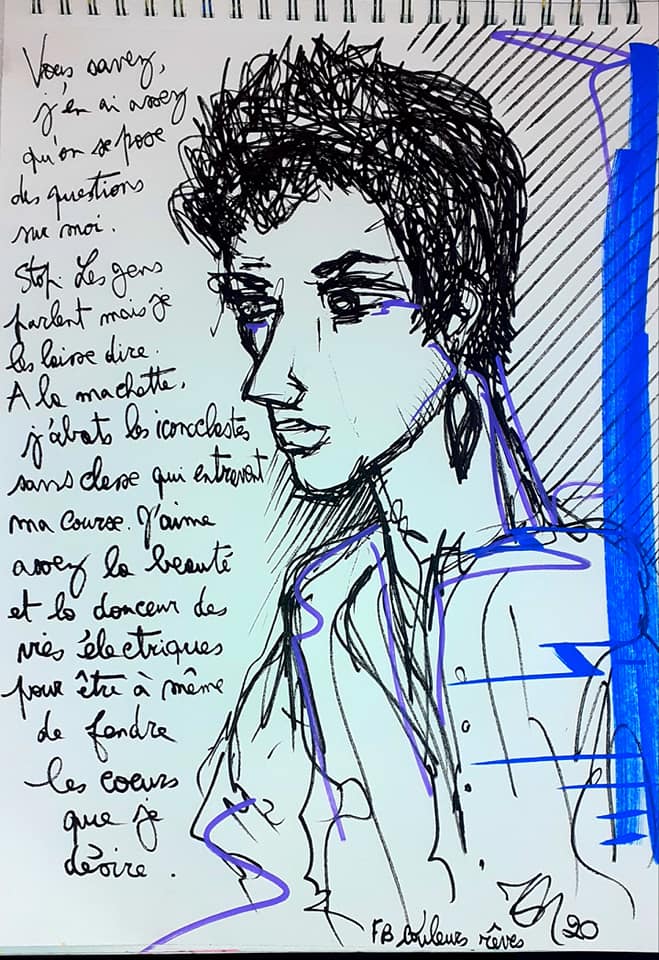 Vous savez,
j'en ai assez
qu'on se pose
des questions
sur moi.
Stop. Les gens
parlent mais je
les laisse dire.
A la machette,
j'abats les iconoclastes
sans classe qui entravent
ma course. J'aime
assez la beauté
et la douceur des
vies électriques
pour être à même
de fendre
les coeurs
que je
désire.
20
FB Couleurs rêves